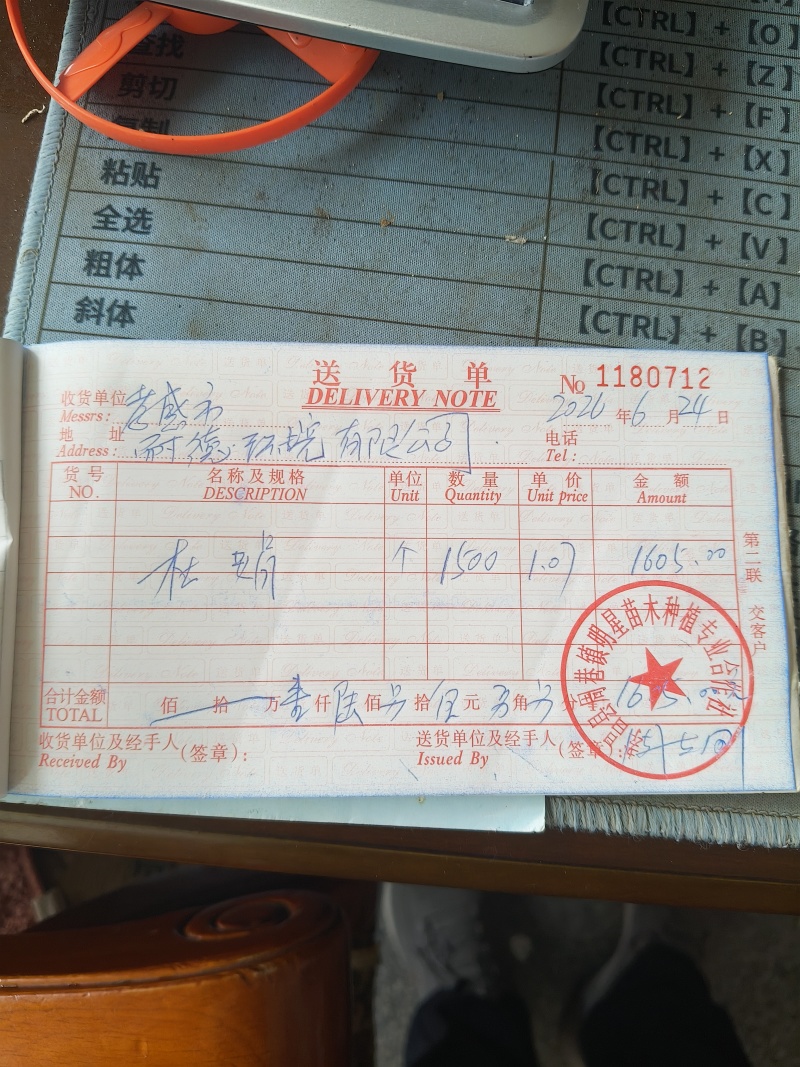 【CTRL】+【O】
查找 【CTRL】+【Z】
剪切 【CTRL】+【F】
复制 【CTRL】+【X】
粘贴 【CTRL】+【C】
全选 【CTRL】+【V】
粗体 【CTRL】+【A】
斜体 【CTRL】+【B
送货单
DELIVERY NOTE
No 1180712
收货单位 孝感市
Messrs:
2026年6月24日
地址 耐德环境有限公司.
Address:
电话
Tel:
货号 名称及规格 单位 数量 单价 金额
NO. DESCRIPTION Unit Quantity Unit price Amount
杜鹃 个 1500 1.07 1605.00
第二联 交客户
合计金额 佰 拾 万壹仟陆佰另拾伍元另角另分 1605.00
TOTAL
收货单位及经手人(签章):
Received By
送货单位及经手人(签章):
Issued By
昌县闻巷镇明星苗木种植专业合作社